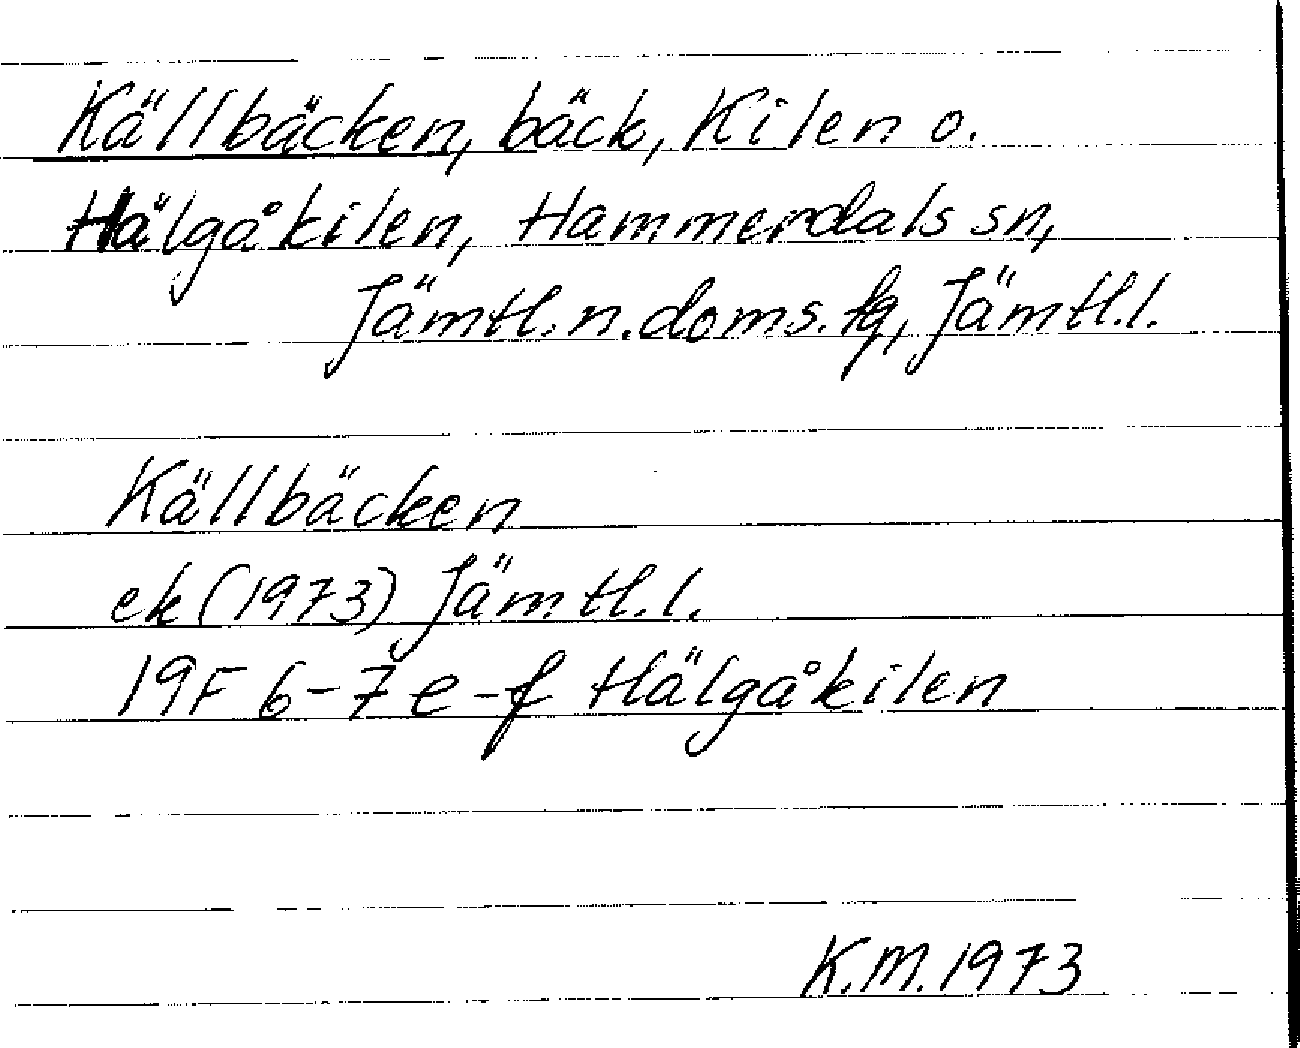 Källbäcken, bäck, Kilen o.
Hälgåkilen, Hammerdals sn,
Jämtl. n. doms. fq, Jämtl.l.
Källbäcken
ek (1973) Jämtl.l.
19F 6-7 e-f Hälgåkilen
K.M. 1973